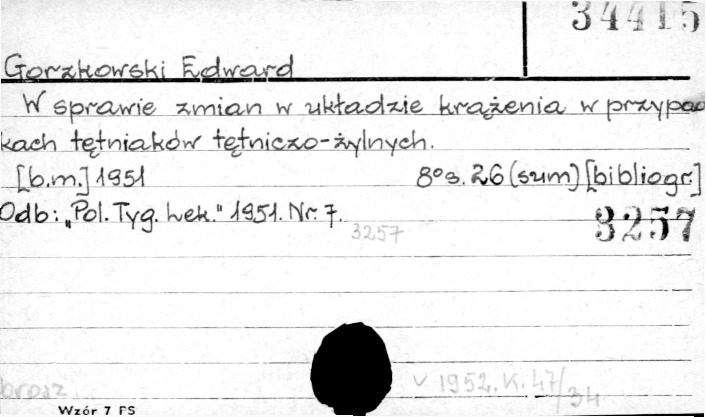 34415
Gorzkowski Edward
W sprawie zmian w układzie krążenia w przypad
kach tętniaków tętniczo-żylnych.
[b.m.] 1951 8° s. 26 (sum) [bibliogr.]
Odb: "Pol. Tyg. Lek." 1951. Nr. 7. 3257
3257
v 1952. K. 47/34
brosz.
Wzór 7 FS